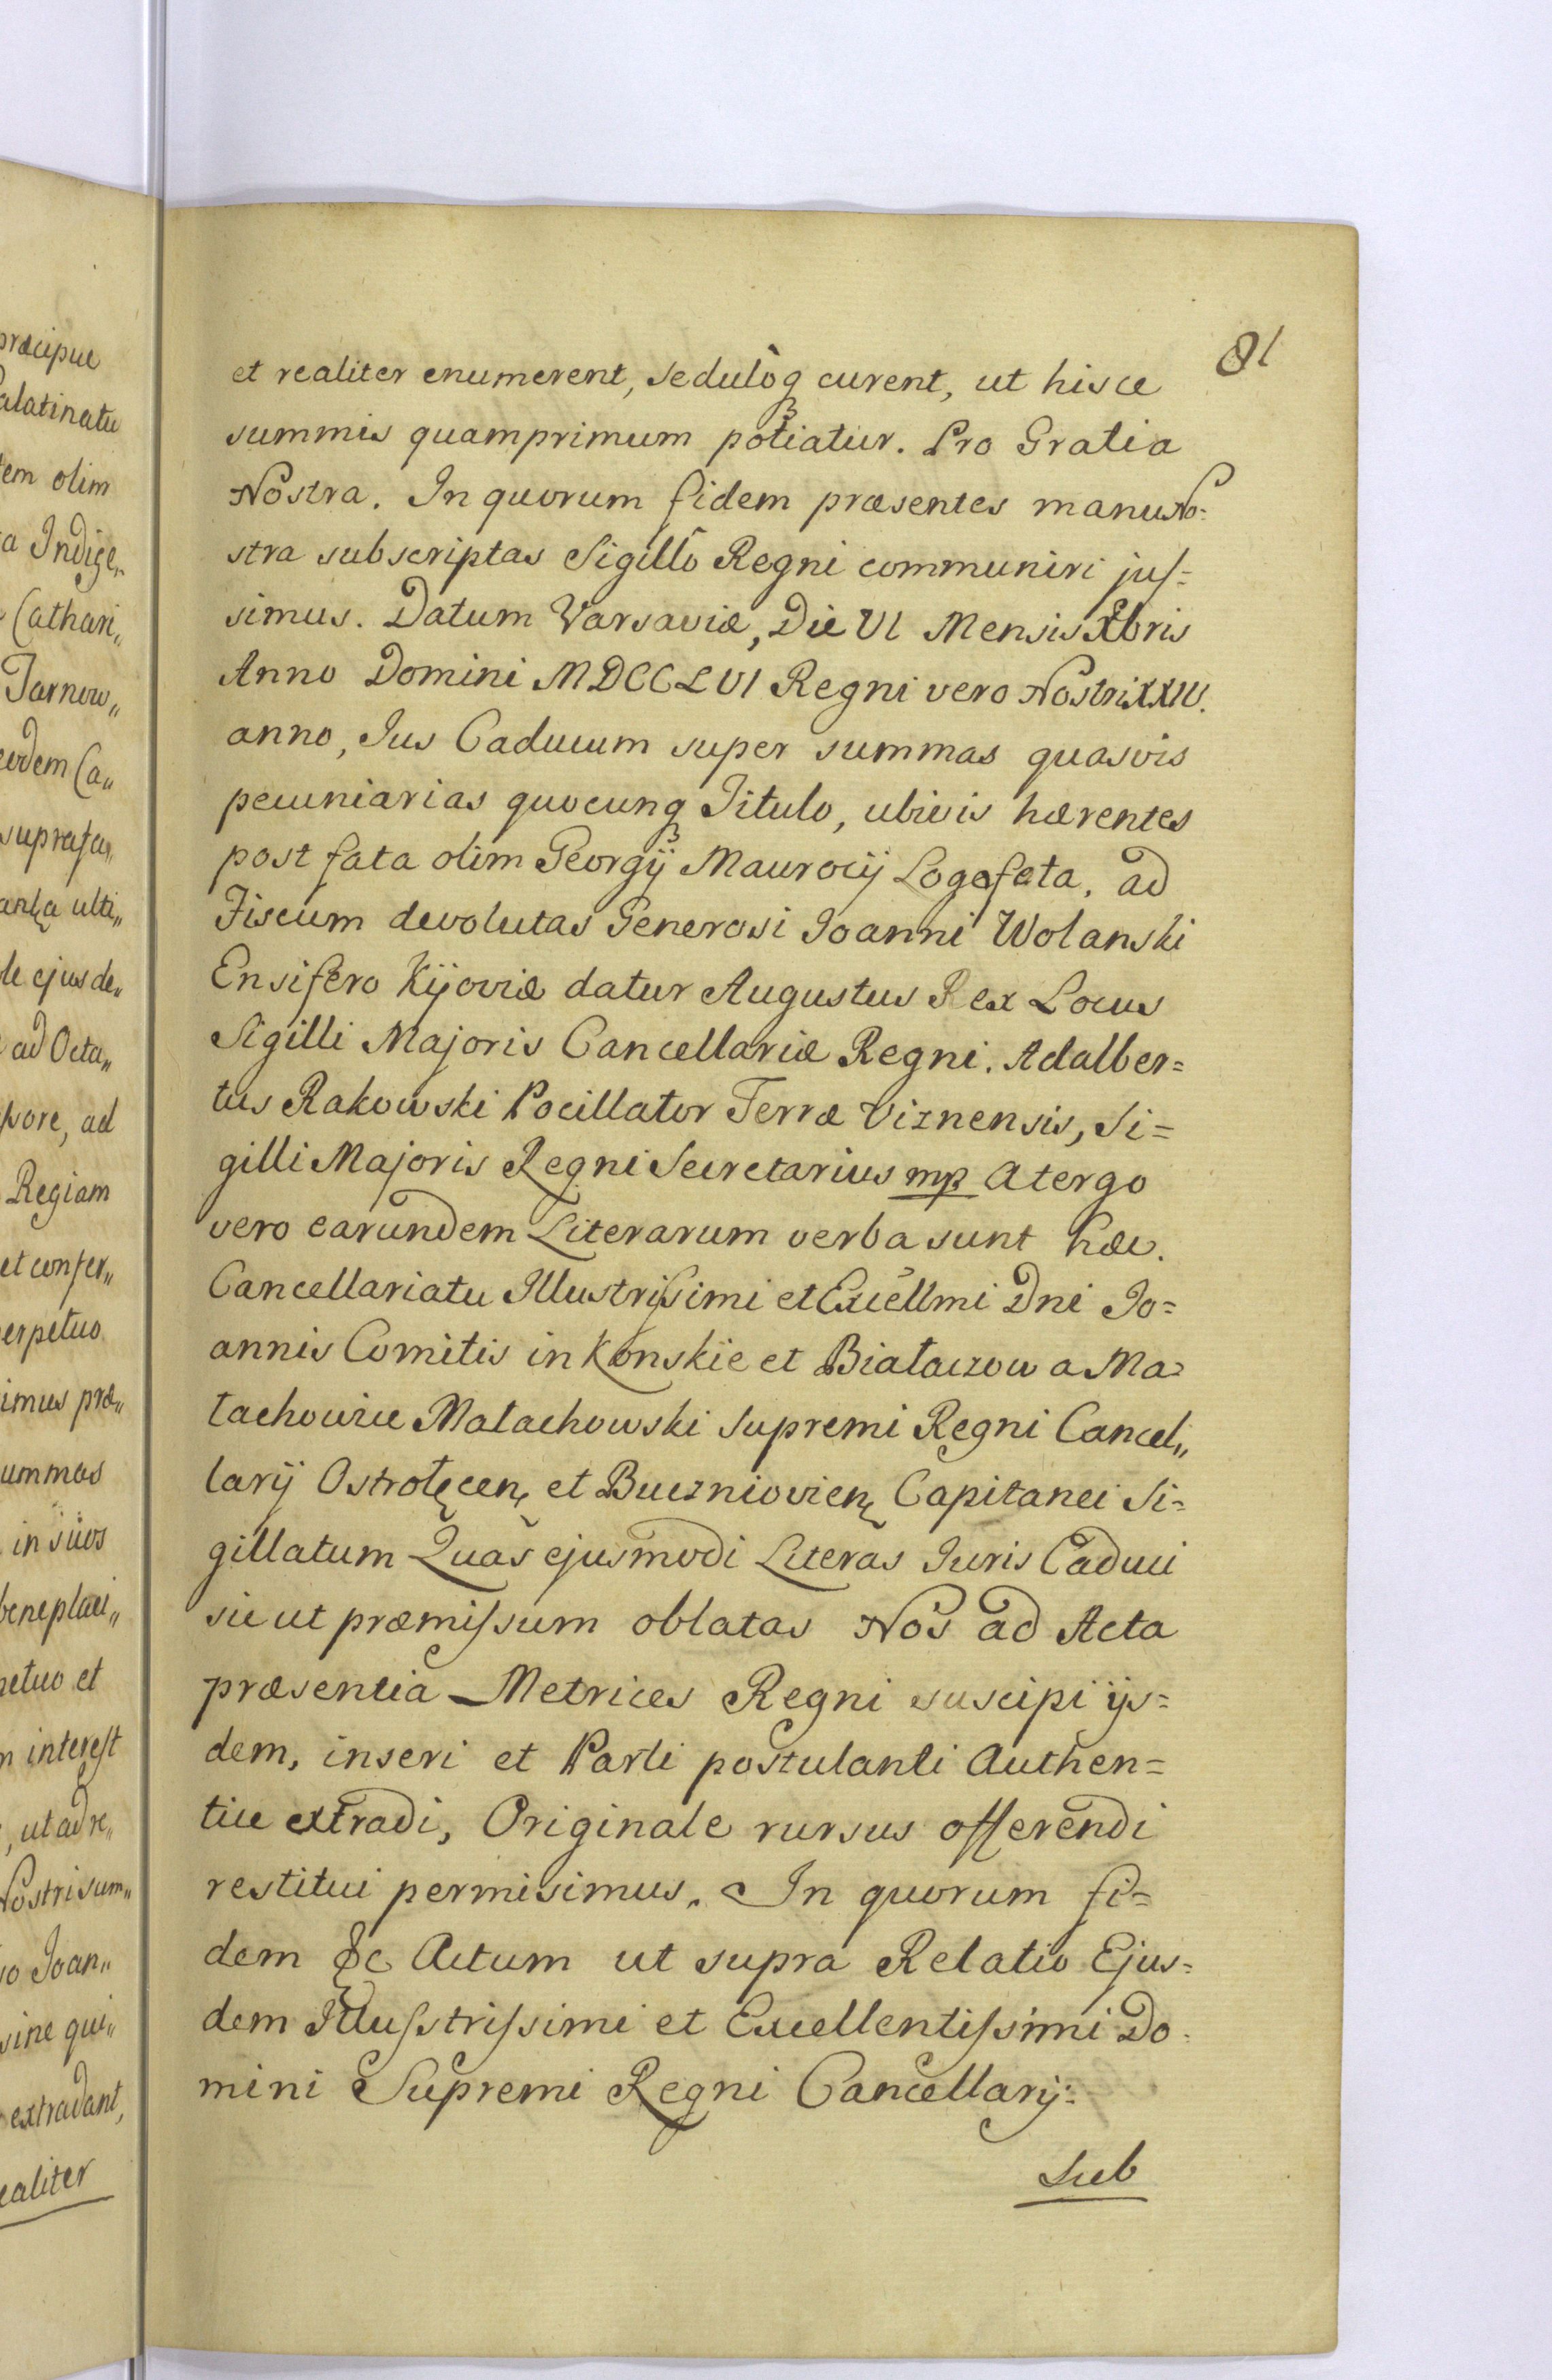 præcipue
alatinatu
tem olim
a Indige„
Cathari„
Tarnow„
eodem Ca„
suprafa„
ulti„
le ejusde„
ad Octa„
pore, ad
Regiam
et confer„
erpetuo
imus præ„
ummas
in suos
beneplaci„
petuo et
interest
, ut ad re„
Nostri sum„
io Joan„
sine qui„
extradant,
ealiter
81
et realiter enumerent, sedulòq curent, ut hisce
summis quamprimum potiatur. Pro Gratia
Nostra. In quorum fidem præsentes manu No=
stra subscriptas Sigillô Regni communiri jus=
simus. Datum Varsaviæ, Die VI Mensis Xbris
Anno Domini MDCCLVI Regni vero Nostri XXIV.
anno, Jus Caducum super summas quasvis
pecuniarias quocunq Titulo, ubivis hærentes
post fata olim Georgij Maurocij Logofeta, ad
Fiscum devolutas Generosi Joanni Wolanski
Ensifero Kijoviæ datur Augustus Rex Locus
Sigilli Majoris Cancellariæ Regni. Adalber=
tus Rakowski Pocillator Terræ Viznensis, Si=
gilli Majoris Regni Secretarius mp Atergo
vero earundem Literarum verba sunt hæc.
Cancellariatu Illustrissimi et Excellmi Dni Jo=
annis Comitis in Konskie et Białaczow a Ma=
łachowice Małachowski Supremi Regni Cancel„
larij Ostrołęcen, et Buczniovien, Capitanei Si=
gillatum Quas ejusmodi Literas Juris Caduci
sic ut præmissum oblatas Nos ad Acta
præsentia Metrices Regni suscipi ijs=
dem, inseri et Parti postulanti Authen=
tice extradi, Originale rursus offerendi
restitui permisimus. In quorum fi=
dem &c Actum ut supra Relatio Ejus=
dem Illusstrissimi et Excellentissimi Do=
mini Supremi Regni Cancellarij=
Sub